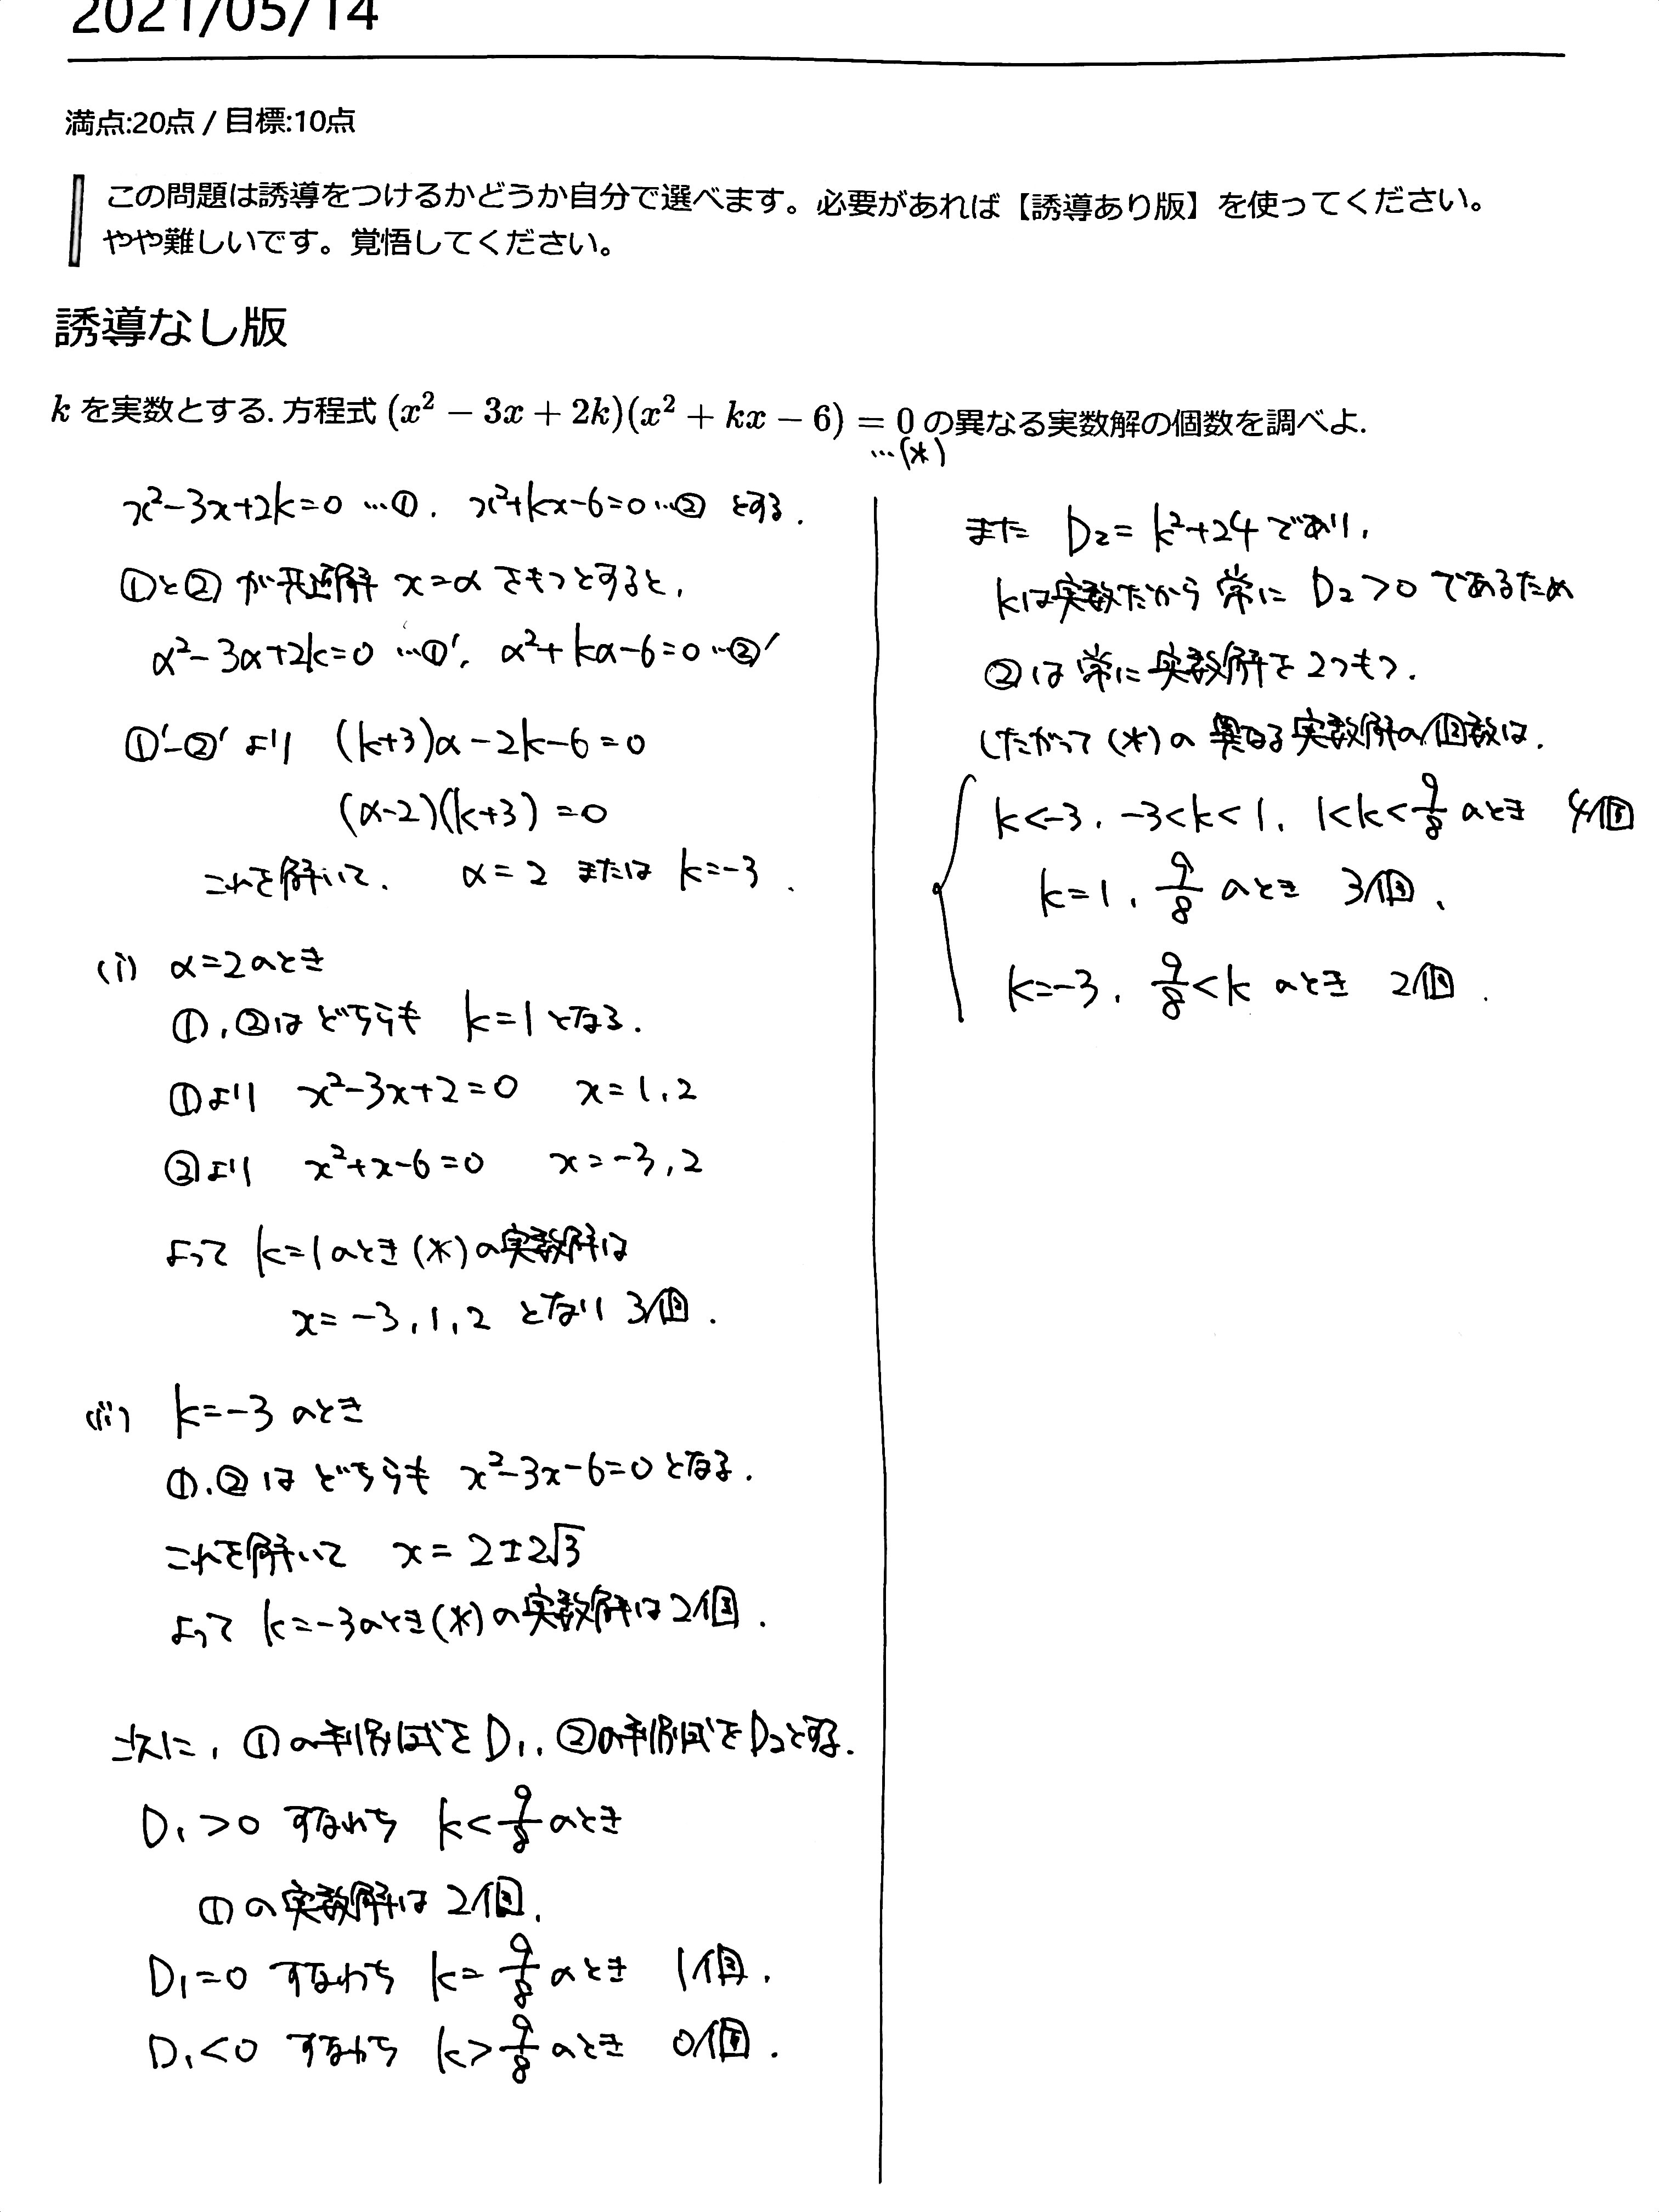 2021/05/14
満点:20点 / 目標:10点
この問題は誘導をつけるかどうか自分で選べます。必要があれば【誘導あり版】を使ってください。
やや難しいです。覚悟してください。
誘導なし版
k を実数とする. 方程式 (x² − 3x + 2k)(x² + kx − 6) = 0 の異なる実数解の個数を調べよ.
…(*)
x²−3x+2k=0 …①, x²+kx−6=0 …② とする.
①と②が共通解 x=α をもつとすると,
α²−3α+2k=0 …①′, α²+kα−6=0 …②′
①′−②′ より (k+3)α−2k−6=0
(α−2)(k+3)=0
これを解いて, α=2 または k=−3.
(i) α=2のとき
①,②はどちらも k=1となる.
①より x²−3x+2=0 x=1,2
②より x²+x−6=0 x=−3,2
よって k=1のとき(*)の実数解は
x=−3,1,2 となり 3個.
(ii) k=−3 のとき
①,②はどちらも x²−3x−6=0となる.
これを解いて x=2±2√3
よって k=−3のとき(*)の実数解は2個.
次に, ①の判別式をD₁, ②の判別式をD₂とする.
D₁>0 すなわち k<9/8 のとき
①の実数解は2個,
D₁=0 すなわち k=9/8 のとき 1個,
D₁<0 すなわち k>9/8 のとき 0個.
また D₂=k²+24 であり,
kは実数だから常に D₂>0 であるため
②は常に実数解を2つもつ.
したがって(*)の異なる実数解の個数は,
k<−3, −3<k<1, 1<k<9/8 のとき 4個
k=1, 9/8 のとき 3個,
k=−3, 9/8<k のとき 2個.